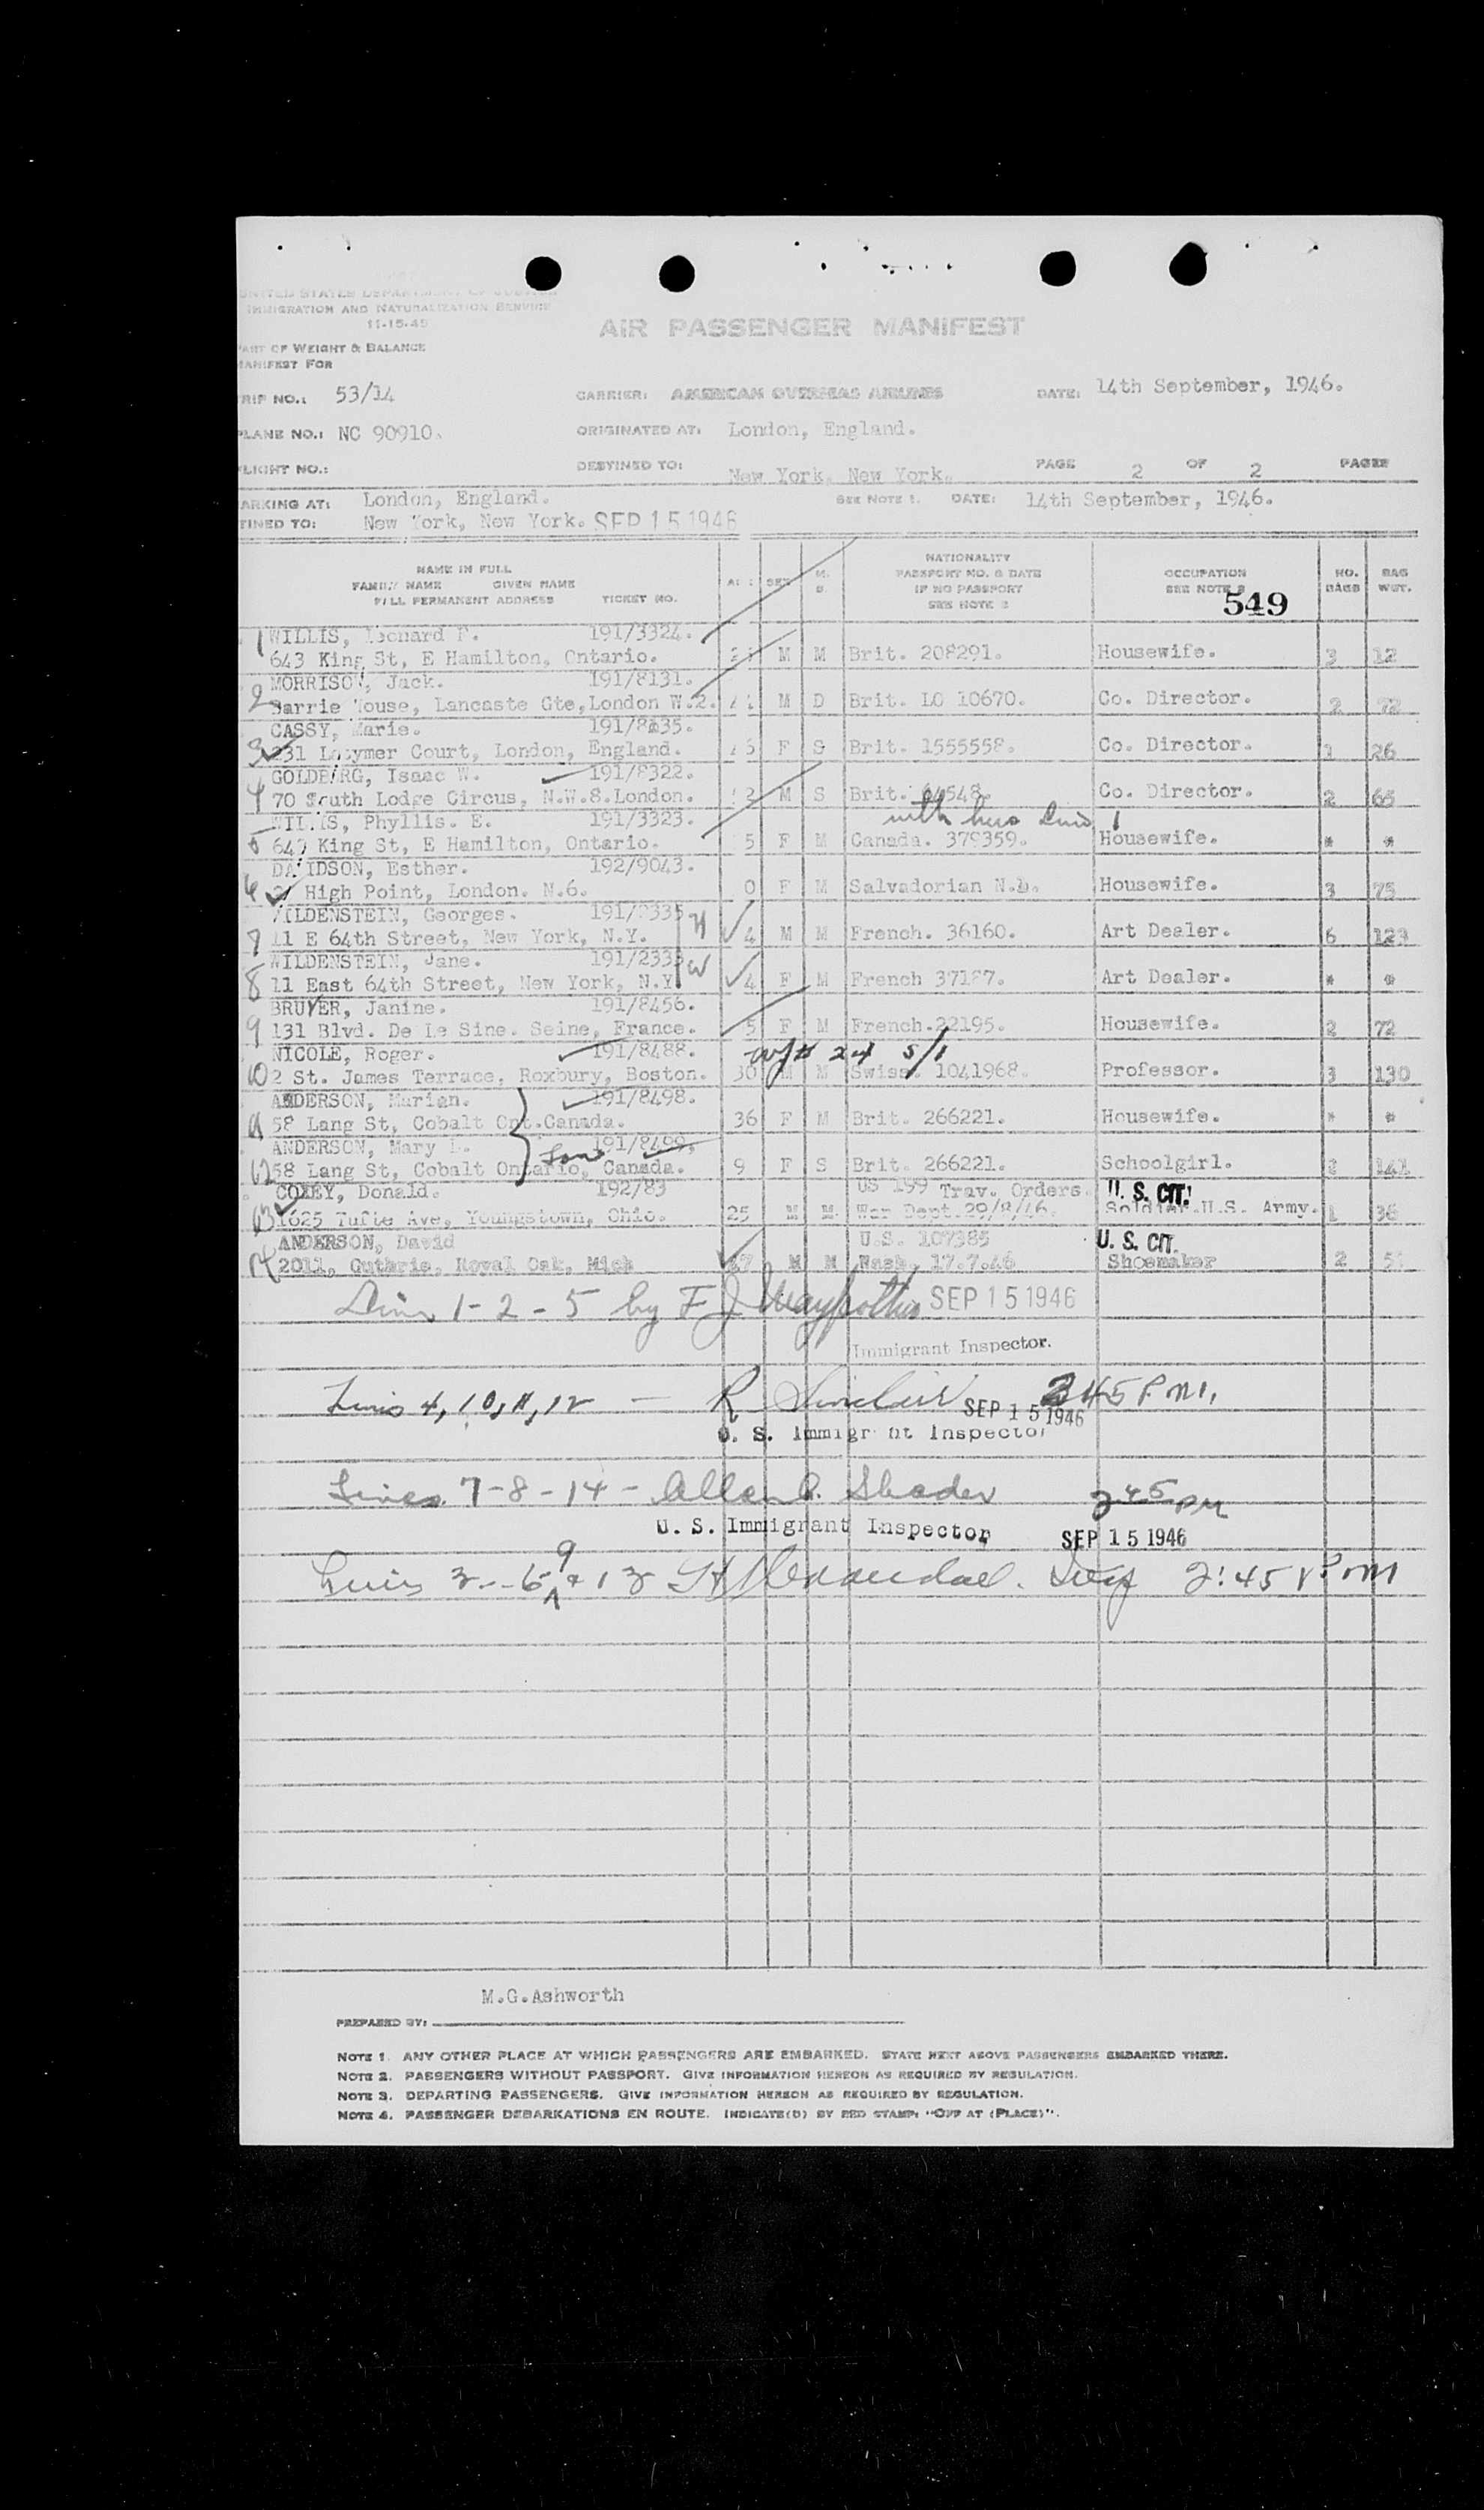 UNITED STATES DEPARTMENT OF JUSTICE
IMMIGRATION AND NATURALIZATION SERVICE
11-15-45
AIR PASSENGER MANIFEST
ART OF WEIGHT & BALANCE
ANIFEST FOR
RIP NO.: 53/14 CARRIER: AMERICAN OVERSEAS AIRLINES DATE: 14th September, 1946.
PLANE NO.: NC 90910. ORIGINATED AT: London, England.
LIGHT NO.: DESTINED TO: New York, New York. PAGE 2 OF 2 PAGES
ARKING AT: London, England. SEE NOTE 1. DATE: 14th September, 1946.
TINED TO: New York, New York. SEP 15 1946
NAME IN FULL
FAMILY NAME GIVEN NAME
FULL PERMANENT ADDRESS TICKET NO.
SEX M. S. NATIONALITY
PASSPORT NO. & DATE
IF NO PASSPORT
SEE NOTE 2
OCCUPATION
SEE NOTE
NO. BAGS
BAG WGT.
549
1 WILLIS, Leonard 191/3324.
643 King St, E Hamilton, Ontario. M M Brit. 208291. Housewife. 3 12
2 MORRISON, Jack. 191/8131.
Barrie House, Lancaste Gte, London W.2. M D Brit. LO 10670. Co. Director. 2 72
CASSY, Marie.
3 231 Latymer Court, London, England. F S Brit. 1555558. Co. Director. 1 26
GOLDBERG, Isaac W. 191/8322.
4 70 South Lodge Circus, N.W.8.London. 2 M S Brit. Co. Director. 2 65
WILLIS, Phyllis. E. 191/3323. with hus Line 1
5 643 King St, E Hamilton, Ontario. 5 F M Canada. 379359. Housewife. * *
DAVIDSON, Esther. 192/9043.
6 High Point, London. N.6. 0 F M Salvadorian Housewife. 3 75
WILDENSTEIN, Georges. H
7 11 E 64th Street, New York, N.Y. 4 M M French. 36160. Art Dealer. 6 123
WILDENSTEIN, Jane. W
8 11 East 64th Street, New York, N.Y. 4 F M French Art Dealer. * *
BRUYER, Janine. 191/8456.
9 131 Blvd. De Le Sine. Seine, France. 5 F M French.22195. Housewife. 2 72
NICOLE, Roger. 191/8488. # 24 s/1
10 2 St. James Terrace, Roxbury, Boston. 30 M M Swiss. 1041968. Professor. 3 130
ANDERSON, Marian. 191/8498.
11 58 Lang St, Cobalt Ont.Canada. 36 F M Brit. 266221. Housewife. * *
ANDERSON, Mary 191/8499.
12 58 Lang St, Cobalt Ontario, Canada. 9 F S Brit. 266221. Schoolgirl. 141
Donald. 192/83 US 199 Trav. Orders. U. S. CIT.
13 1625 Tufte Ave, Youngstown, Ohio. 25 M M War Dept.29/8/46. Soldier.U.S. Army. 1 36
ANDERSON, David U.S. 107385 U. S. CIT.
14 2011, Guthrie, Royal Oak, Mich M M Wash. 17.7.46 Shoemaker 2
Lines 1-2-5 by F J SEP 15 1946
Immigrant Inspector.
Lines 4, 10, 11, 12 — R Sinclair SEP 15 1946 245 P.M.
U. S. Immigrant Inspector
Lines 7-8-14 - Allen Shader 245 PM
U. S. Immigrant Inspector SEP 15 1946
Lines 3 - 6 9 & 13 2:45 P M
M.G.Ashworth
PREPARED BY:
NOTE 1. ANY OTHER PLACE AT WHICH PASSENGERS ARE EMBARKED. STATE NEXT ABOVE PASSENGERS EMBARKED THERE.
NOTE 2. PASSENGERS WITHOUT PASSPORT. GIVE INFORMATION HEREON AS REQUIRED BY REGULATION.
NOTE 3. DEPARTING PASSENGERS. GIVE INFORMATION HEREON AS REQUIRED BY REGULATION.
NOTE 4. PASSENGER DEBARKATIONS EN ROUTE. INDICATE(D) BY RED STAMP: "OFF AT (PLACE)".